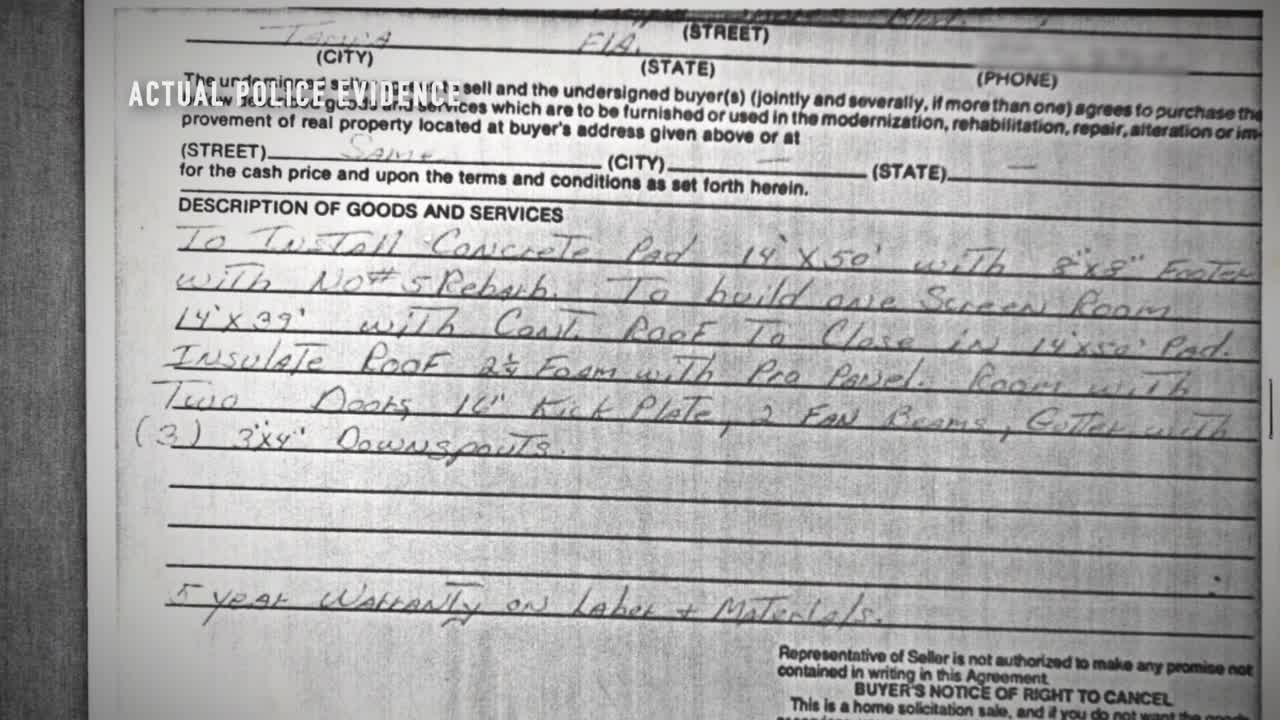 (STREET)
Tampa Fla.
(CITY) (STATE) (PHONE)
ACTUAL POLICE EVIDENCE
The undersigned sell and the undersigned buyer(s) (jointly and severally, if more than one) agrees to purchase the
goods and services which are to be furnished or used in the modernization, rehabilitation, repair, alteration or im-
provement of real property located at buyer's address given above or at
(STREET) Same (CITY) — (STATE) —
for the cash price and upon the terms and conditions as set forth herein.
DESCRIPTION OF GOODS AND SERVICES
To Install Concrete Pad 14' X 50' with 8"x8" Footer
with No# 5 Rebarb. To build one Screen Room
14' X 39' with Cont. Roof To Close in 14'x50' Pad.
Insulate Roof 2¼ Foam with Pro Panel. Room with
Two Doors, 16" Kick Plate, 2 Fan Beams, Gutter with
(3) 3"x4" Downspouts.
5 year Warranty on Labor + Materials.
Representative of Seller is not authorized to make any promise not
contained in writing in this Agreement.
BUYER'S NOTICE OF RIGHT TO CANCEL
This is a home solicitation sale, and if you do not want the goods